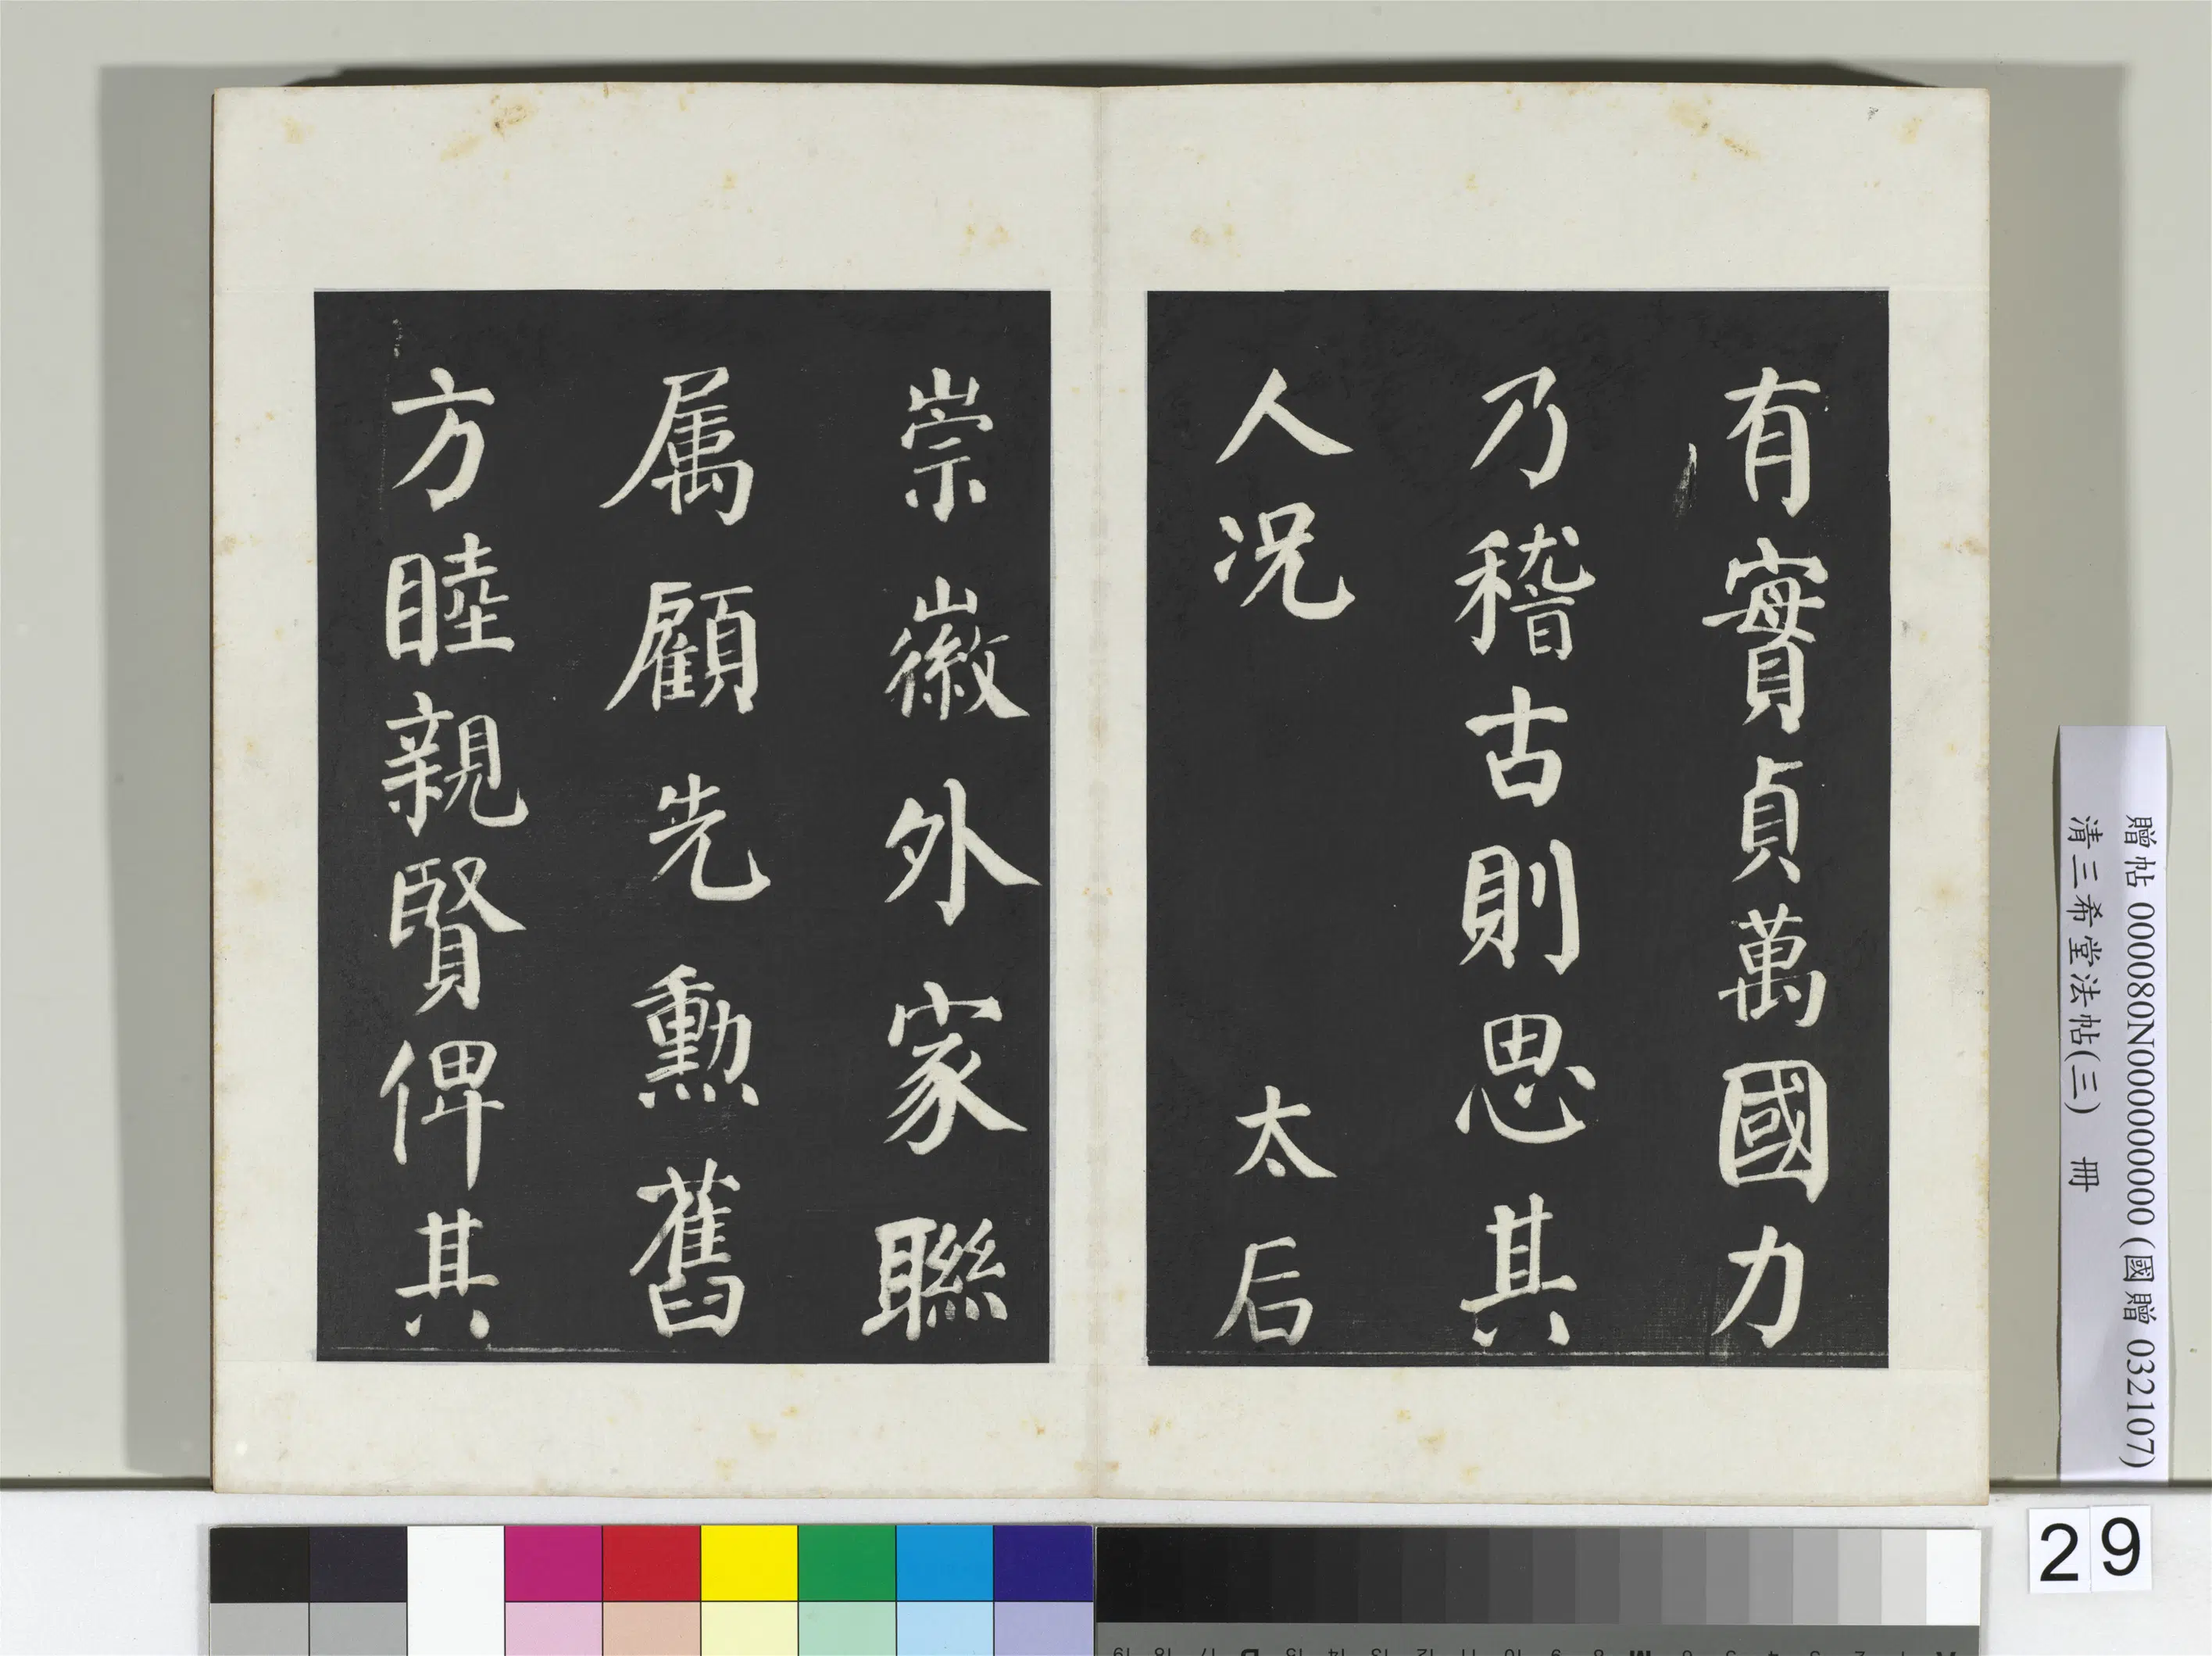 有實貞萬國力
乃稽古則思其
人况 太后
崇徽外家聯
属顧先勲舊
方睦親賢俾其
贈帖 000080N000000000 (國贈 032107)
清三希堂法帖(三) 冊
29